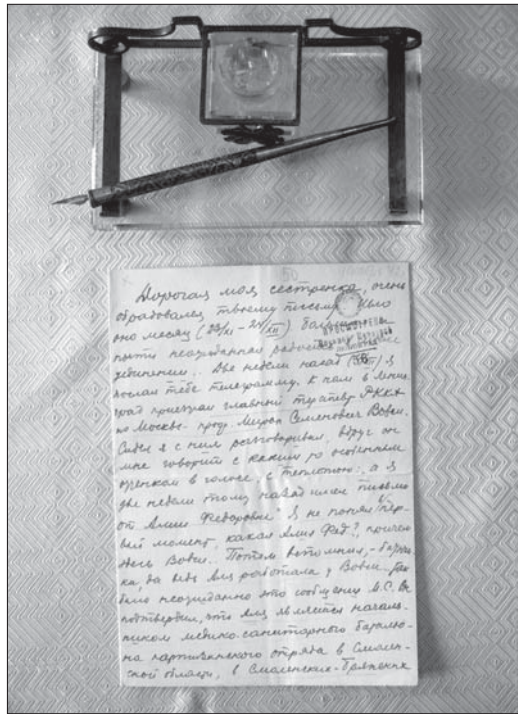 50
Дорогая моя сестренка, очень
обрадовался твоему письму. Шло
оно месяц (23/XI – 24/XII)
ПРОСМОТРЕНО
Военной Цензурой
почти неожиданная
уединении.. Две недели назад я
послал тебе телеграмму. К нам в Ленин-
град приезжал главный терапевт РККА
из Москвы - проф. Мирон Семенович Вовси.
Сидел я с ним разговаривал, вдруг он
мне говорит с каким то особенным
оттенком в голосе, с теплотою: „а я
две недели тому назад имел письмо
от Федоровне" Я не понял пер-
вый момент, какая Фед.?, причем
здесь Вовси.. Потом вспомнил, - батюш-
ка, да ведь Аля работала у Вовси. Так
было неожиданно это сообщение. М.С.
подтвердил, что Аля является началь-
ником медико-санитарного батальо-
на партизанского отряда в Смолен-
ской области, в Смоленских-Брянских